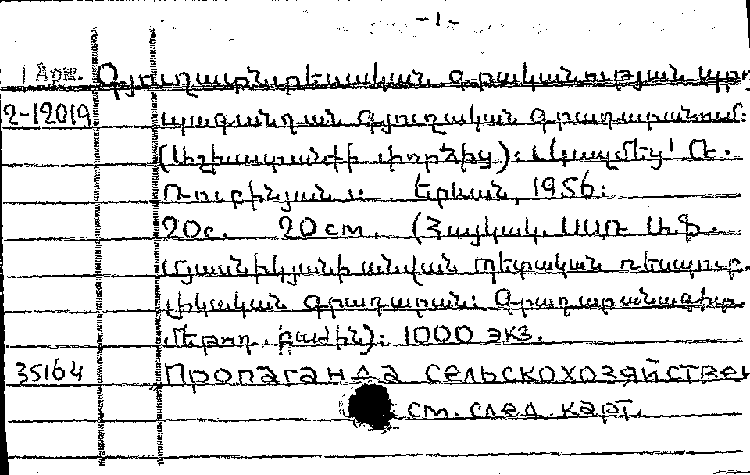 -1-
1 Арм. Գյուղատնտեսական գրականության պրո
2-12019 պագանդան գյուղական գրադարանում:
(Աշխատանքի փորձից): Կազմեց՝ Ռ.
Ռուբինյան: Երևան, 1956:
20с. 20 cm. (Հայկակ. ՍՍՌ Ա.Ֆ.
Մյասնիկյանի անվան պետական ռեսպուբ-
լիկական գրադարան: Գրադարանագիտ.
մեթոդ. բաժին): 1000 экз.
35164 Пропаганда сельскохозяйствен
см. след. карт.